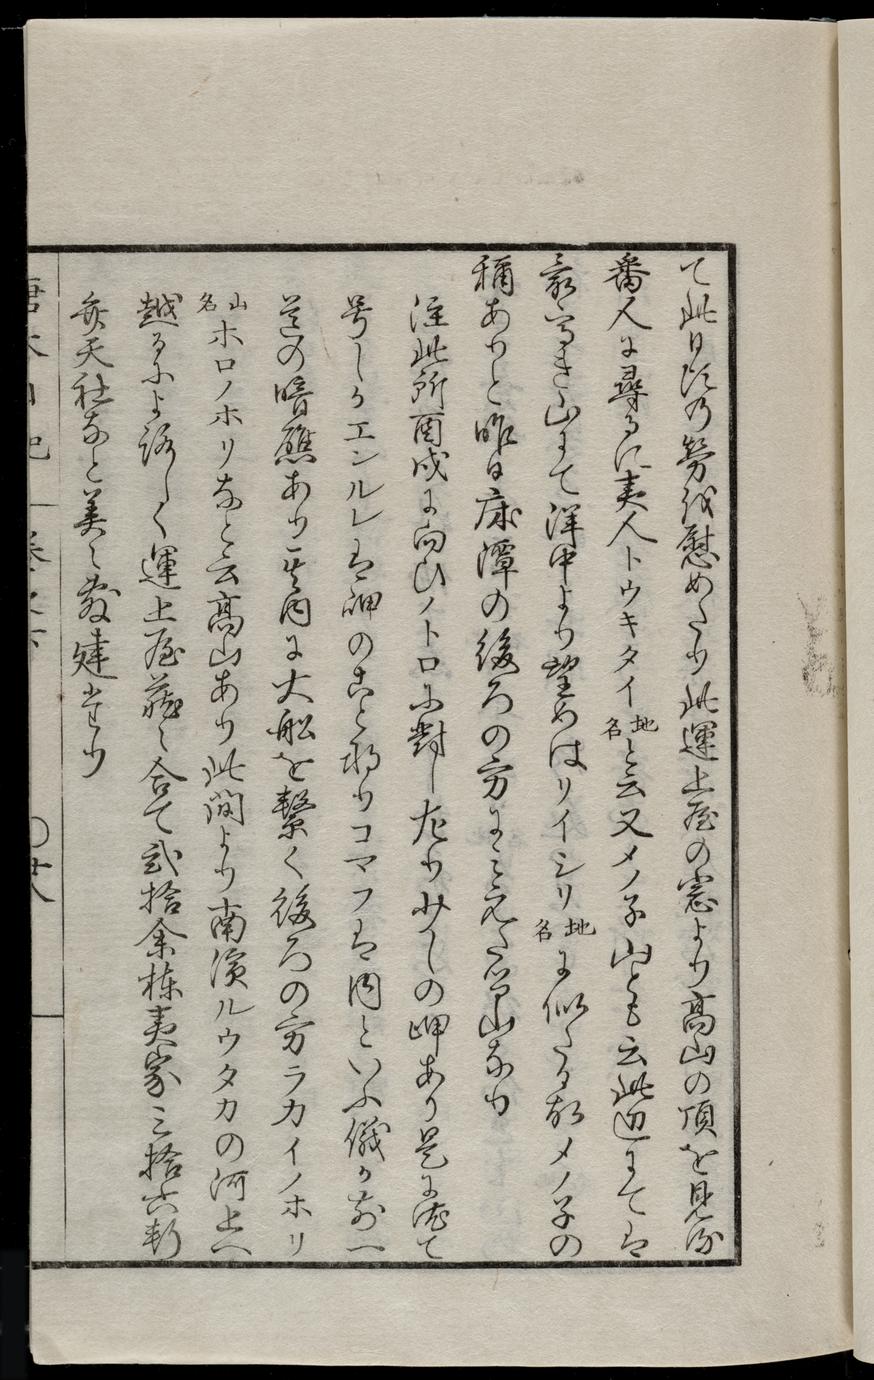 て此日頃の労を慰めたり此運上屋の窓より高山の頂を見る
番人に尋るに夷人トウキタイ地名と云又メノ子山とも云此辺にては
高き山にて洋中より望めはリイシリ地名に似たる故メノ子の
称ありと昨日麻潭の後ろの方にみえたる山なり
注此所酉戌に向ひノトロに対し左り少しの岬あり是に依て
号しかエンルレは岬のこと也コマフは内といふ儀か前一
の暗礁あり其内に大船を繋く後ろの方ラカイノホリ
山名ホロノホリなと云高山あり此間より南濱ルウタカの河上へ
越るによろしく運上屋蔵々合て弐拾余棟夷家三拾六軒
弁天社なと美々敷建たり
唐太日記 巻之下 〇廿八